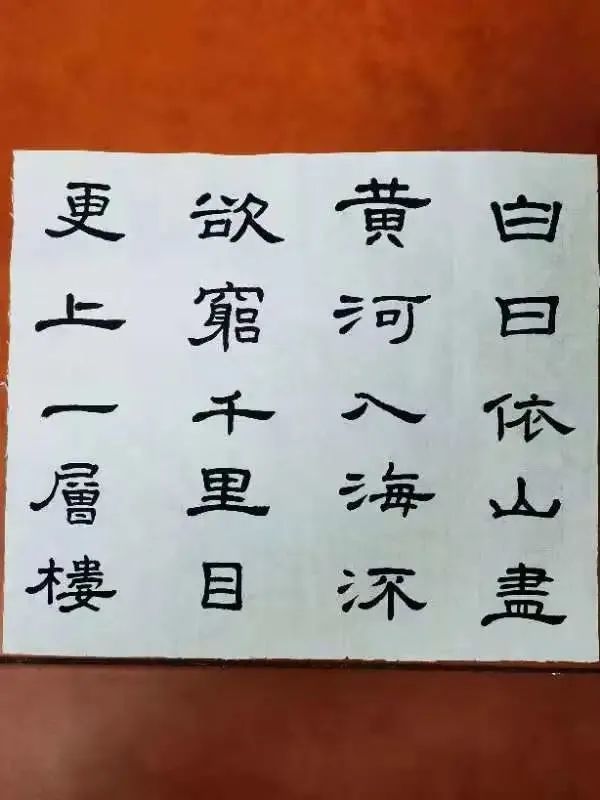 白日依山盡
黄河入海流
欲窮千里目
更上一層樓